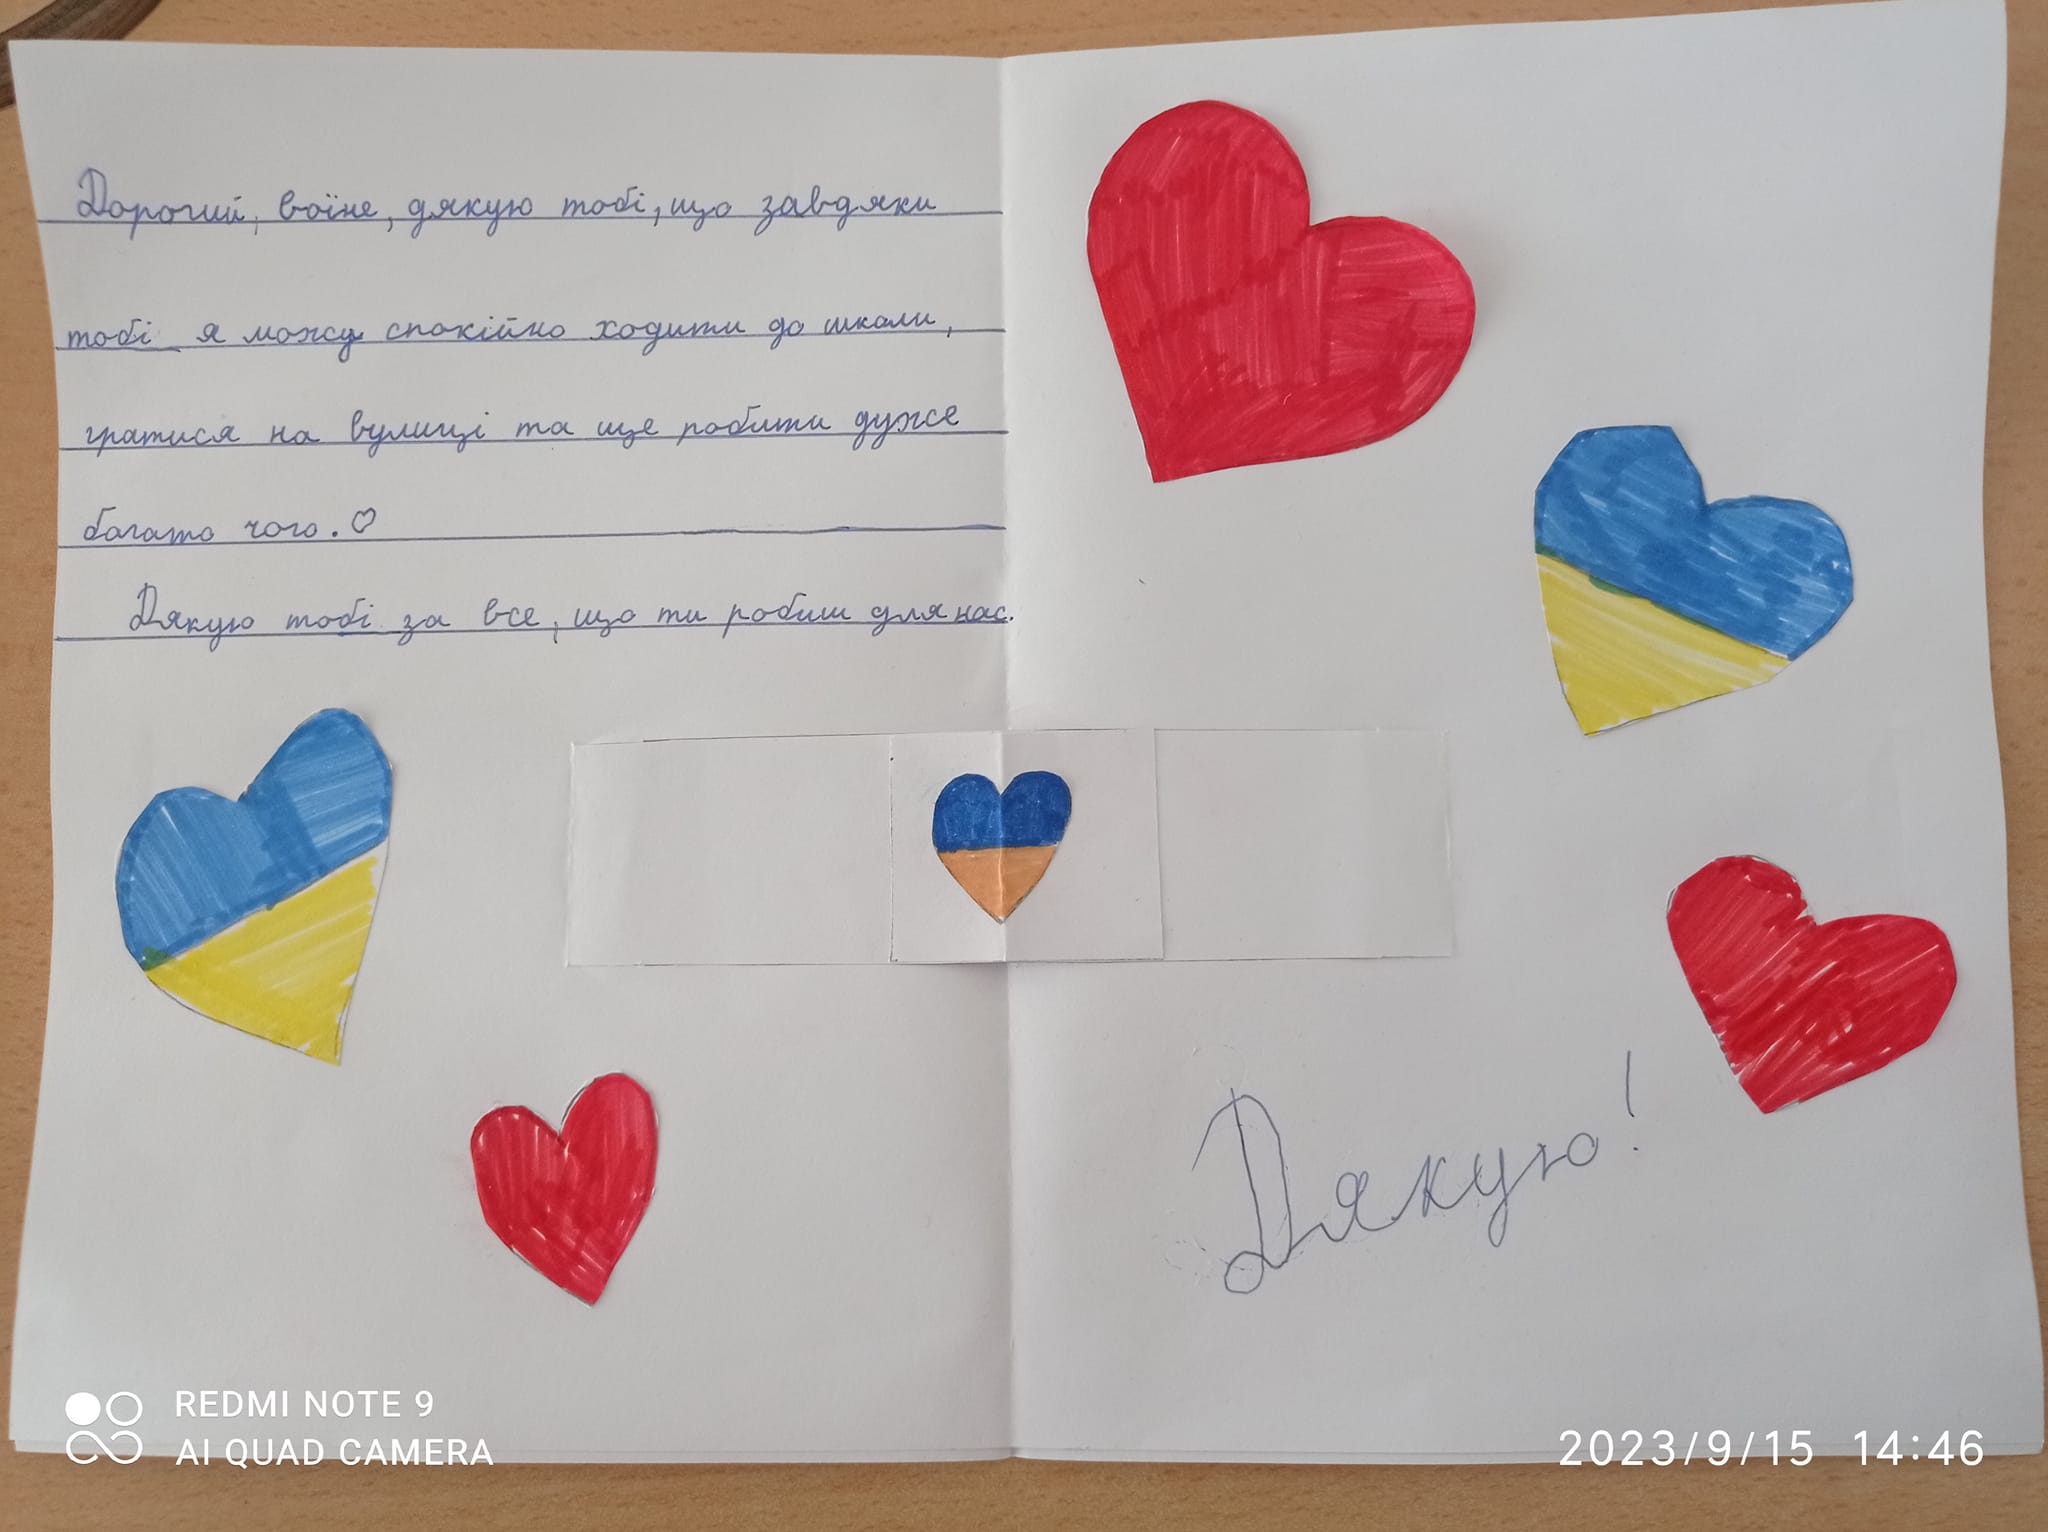 Дорогий, воїне, дякую тобі, що завдяки
тобі я можу спокійно ходити до школи,
гратися на вулиці та ще робити дуже
багато чого.♡
Дякую тобі за все, що ти робиш для нас.
Дякую!
REDMI NOTE 9
AI QUAD CAMERA
2023/9/15 14:46